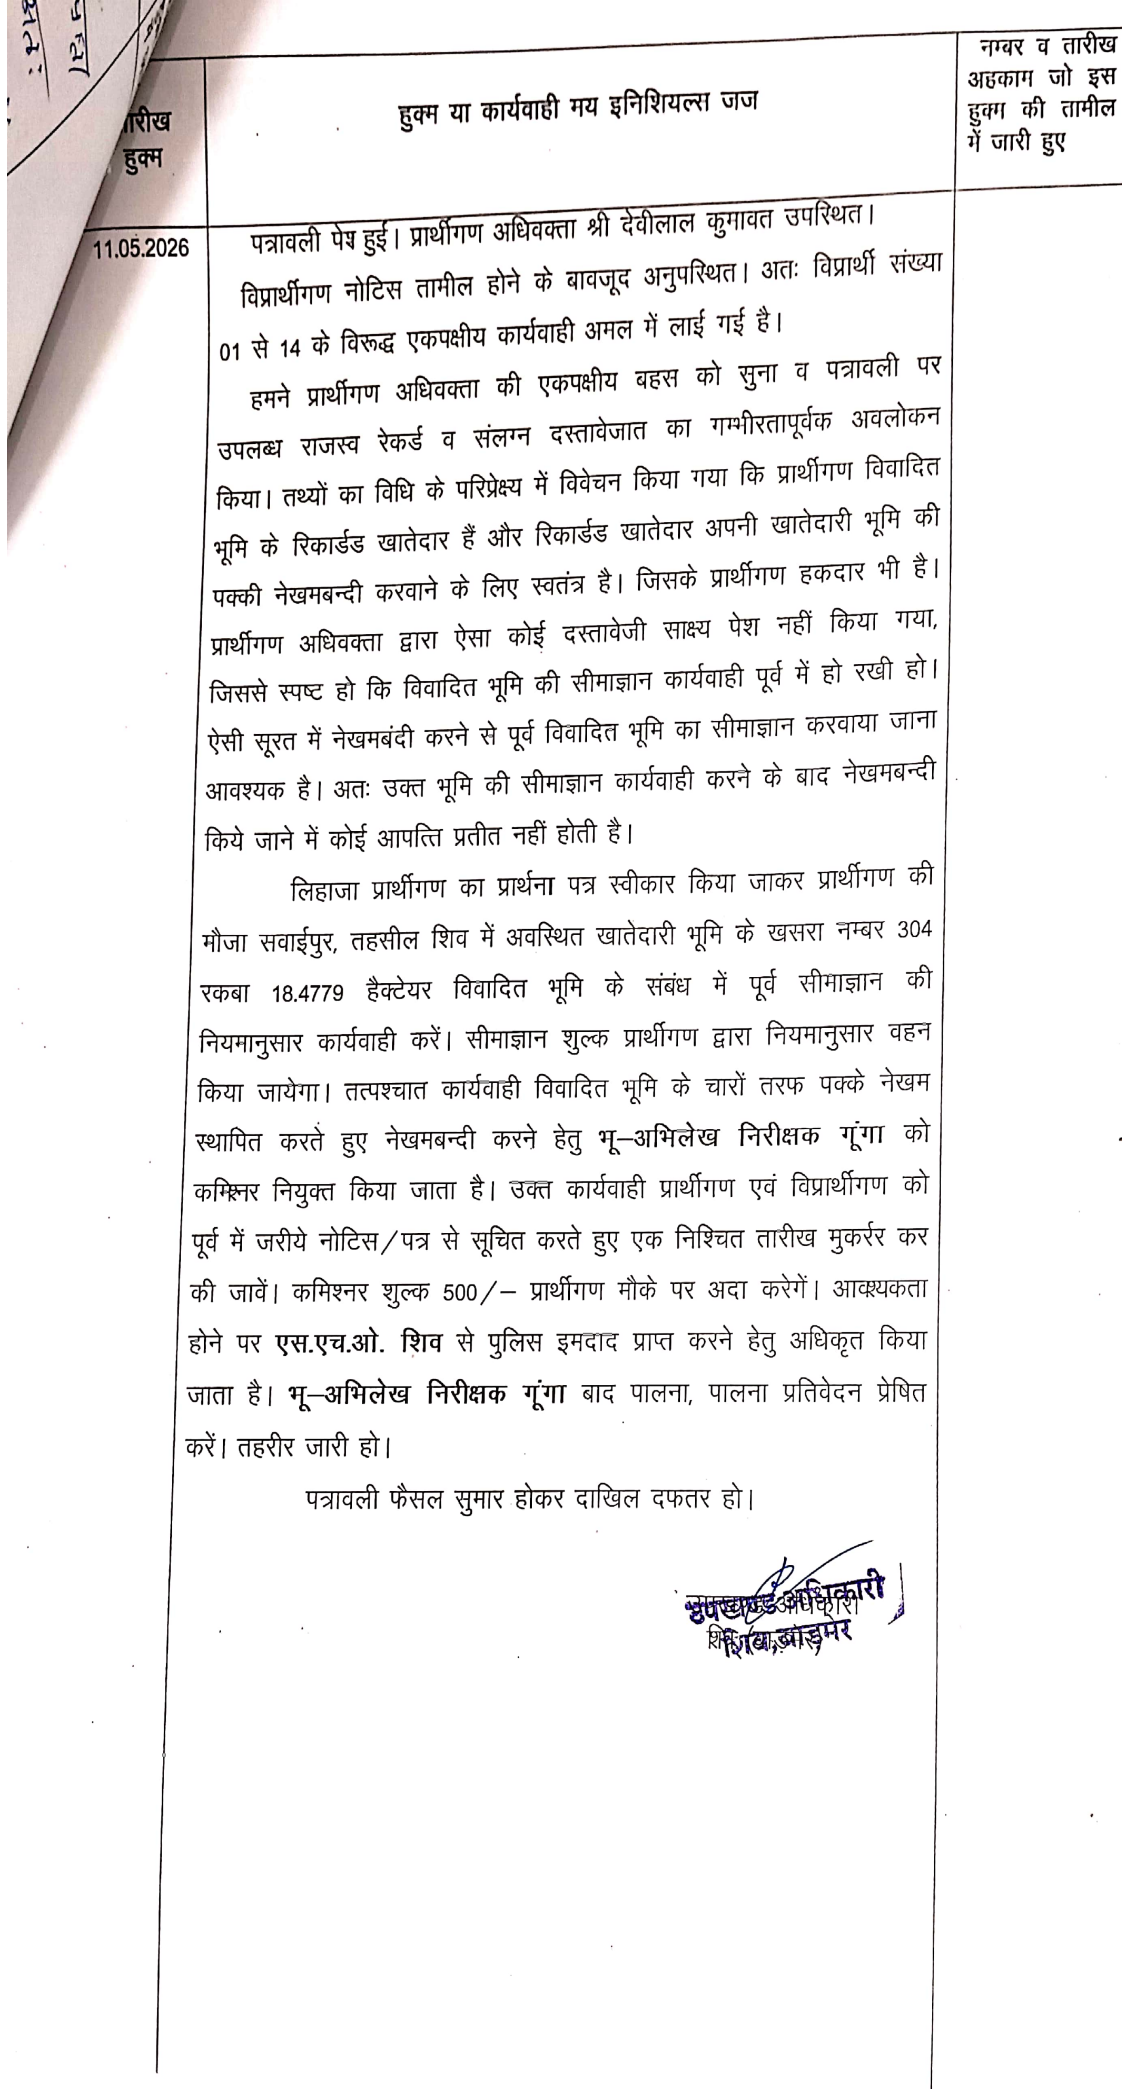 नम्बर व तारीख
अहकाम जो इस
हुक्म की तामील
में जारी हुए
हुक्म या कार्यवाही मय इनिशियल्स जज
ारीख
हुक्म
11.05.2026
पत्रावली पेश हुई। प्रार्थीगण अधिवक्ता श्री देवीलाल कुमावत उपस्थित।
विप्रार्थीगण नोटिस तामील होने के बावजूद अनुपस्थित। अतः विप्रार्थी संख्या
01 से 14 के विरूद्ध एकपक्षीय कार्यवाही अमल में लाई गई है।
हमने प्रार्थीगण अधिवक्ता की एकपक्षीय बहस को सुना व पत्रावली पर
उपलब्ध राजस्व रेकर्ड व संलग्न दस्तावेजात का गम्भीरतापूर्वक अवलोकन
किया। तथ्यों का विधि के परिप्रेक्ष्य में विवेचन किया गया कि प्रार्थीगण विवादित
भूमि के रिकार्डड खातेदार हैं और रिकार्डड खातेदार अपनी खातेदारी भूमि की
पक्की नेखमबन्दी करवाने के लिए स्वतंत्र है। जिसके प्रार्थीगण हकदार भी है।
प्रार्थीगण अधिवक्ता द्वारा ऐसा कोई दस्तावेजी साक्ष्य पेश नहीं किया गया,
जिससे स्पष्ट हो कि विवादित भूमि की सीमाज्ञान कार्यवाही पूर्व में हो रखी हो।
ऐसी सूरत में नेखमबंदी करने से पूर्व विवादित भूमि का सीमाज्ञान करवाया जाना
आवश्यक है। अतः उक्त भूमि की सीमाज्ञान कार्यवाही करने के बाद नेखमबन्दी
किये जाने में कोई आपत्ति प्रतीत नहीं होती है।
लिहाजा प्रार्थीगण का प्रार्थना पत्र स्वीकार किया जाकर प्रार्थीगण की
मौजा सवाईपुर, तहसील शिव में अवस्थित खातेदारी भूमि के खसरा नम्बर 304
रकबा 18.4779 हैक्टेयर विवादित भूमि के संबंध में पूर्व सीमाज्ञान की
नियमानुसार कार्यवाही करें। सीमाज्ञान शुल्क प्रार्थीगण द्वारा नियमानुसार वहन
किया जायेगा। तत्पश्चात कार्यवाही विवादित भूमि के चारों तरफ पक्के नेखम
स्थापित करते हुए नेखमबन्दी करने हेतु भू–अभिलेख निरीक्षक गूंगा को
कमिश्नर नियुक्त किया जाता है। उक्त कार्यवाही प्रार्थीगण एवं विप्रार्थीगण को
पूर्व में जरीये नोटिस/पत्र से सूचित करते हुए एक निश्चित तारीख मुकर्रर कर
की जावें। कमिश्नर शुल्क 500/– प्रार्थीगण मौके पर अदा करेगें। आवश्यकता
होने पर एस.एच.ओ. शिव से पुलिस इमदाद प्राप्त करने हेतु अधिकृत किया
जाता है। भू–अभिलेख निरीक्षक गूंगा बाद पालना, पालना प्रतिवेदन प्रेषित
करें। तहरीर जारी हो।
पत्रावली फैसल सुमार होकर दाखिल दफतर हो।
उपखण्ड अधिकारी
शिव, बाड़मेर